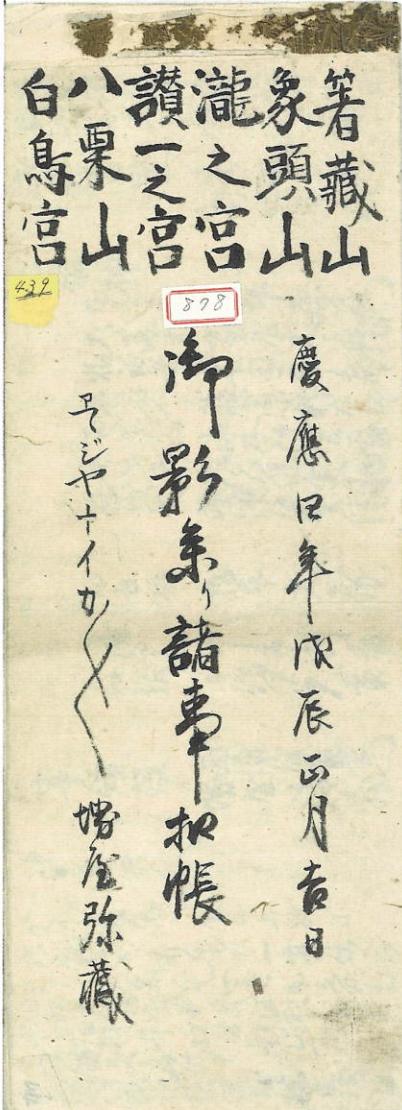 箸藏山
象頭山
瀧之宮
讃一之宮
八栗山
白鳥宮
439
878
慶應四年戊辰正月吉日
御影参り諸事扣帳
ヱヽジヤナイカ〱
屋弥藏